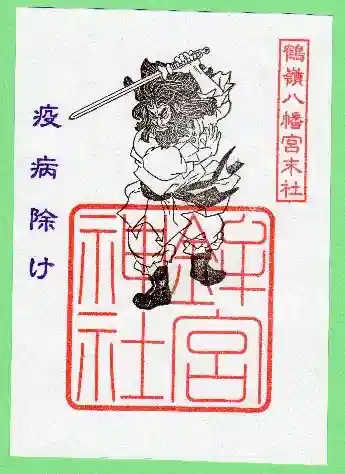 鶴嶺八幡宮末社
疫病除け
鉾宮
神社